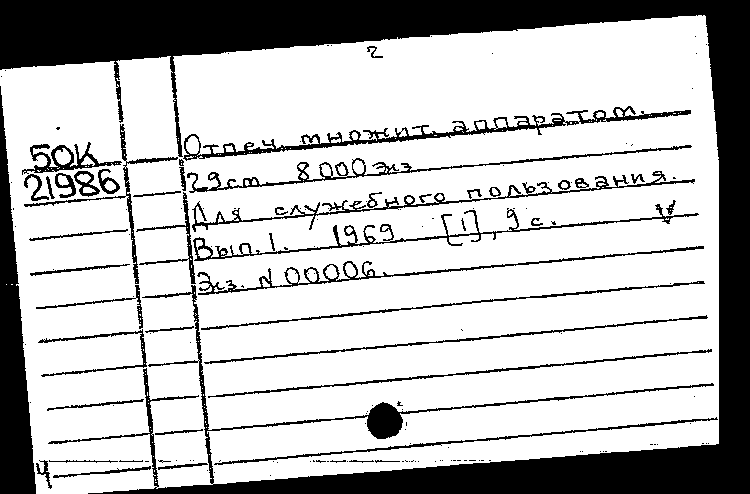 2
Отпеч. множит. аппаратом.
50К
21986
29 cm 8000 экз
Для служебного пользования.
Вып. 1. 1969. [1], 9 с.
Экз. N 00006.
4